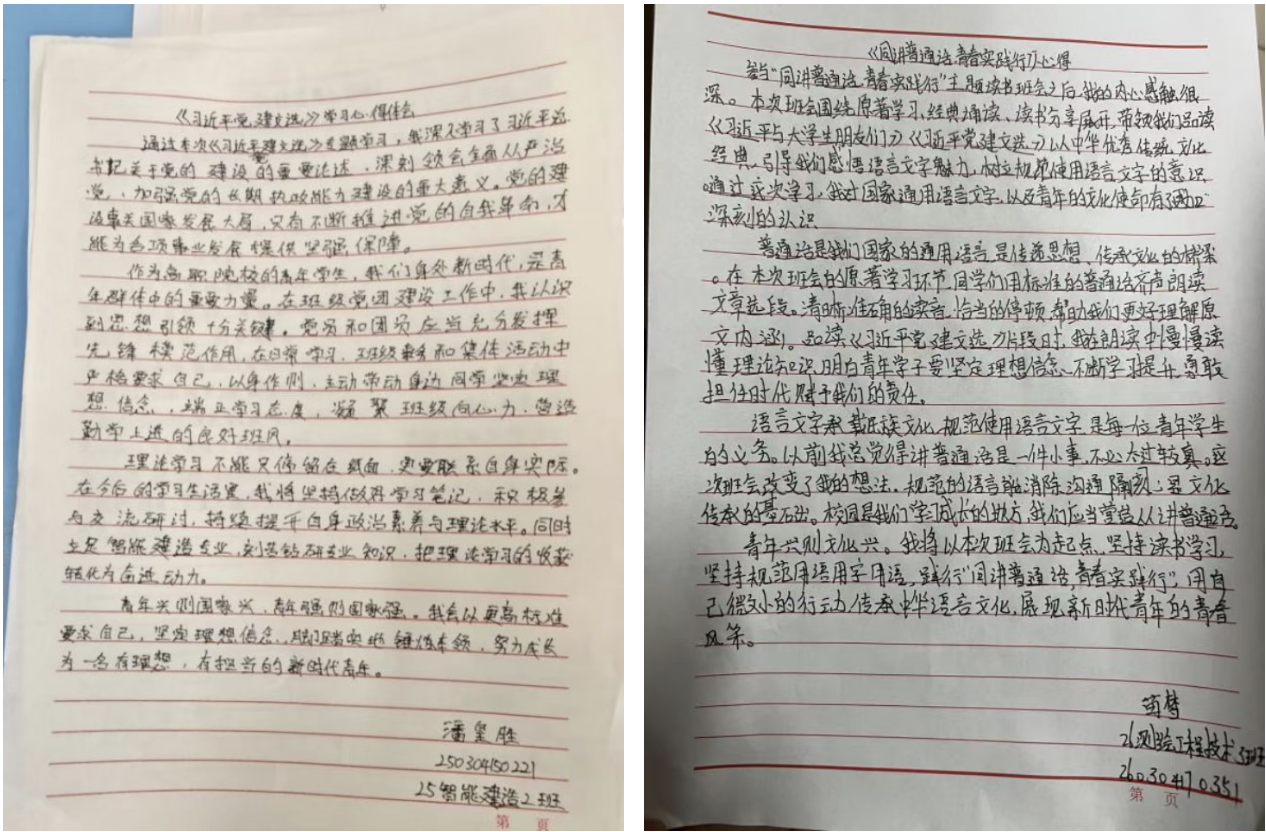 《习近平党建文选》学习心得体会
通过本次《习近平党建文选》专题学习，我深入学习了习近平总
书记关于党的建设的重要论述，深刻领会全面从严治
党，加强党的长期执政能力建设的重大意义。党的建
设事关国家发展大局，只有不断推进党的自我革命，才
能为各项事业发展提供坚强保障。
作为高职院校的青年学生，我们身处新时代，是青
年群体中的重要力量。在班级党团建设工作中，我认识
到思想引领十分关键。党员和团员应当充分发挥
先锋模范作用，在日常学习、班级事务和集体活动中
严格要求自己，以身作则，主动带动身边同学坚定理
想信念，端正学习态度，凝聚班级向心力，营造
勤学上进的良好班风。
理论学习不能只停留在纸面，更要联系自身实际。
在今后的学习生活里，我将坚持做好学习笔记，积极参
与交流研讨，持续提升自身政治素养与理论水平。同时
立足智能建造专业，刻苦钻研专业知识，把理论学习的收获
转化为奋进动力。
青年兴则国家兴，青年强则国家强。我会以更高标准
要求自己，坚定理想信念，脚踏实地锤炼本领，努力成长
为一名有理想，有担当的新时代青年。
潘呈胜
250304150221
25智能建造2班
第 页
《同讲普通话，青春实践行》心得
参与“同讲普通话，青春实践行”主题读书班会之后，我的内心感触很
深。本次班会围绕原著学习、经典诵读、读书分享展开，带领我们品读
《习近平与大学生朋友们》《习近平党建文选》以中华优秀传统文化
经典，引导我们感悟语言文字魅力，树立规范使用语言文字的意识
。通过这次学习，我对国家通用语言文字，以及青年的文化使命有了更加
深刻的认识
普通话是我们国家的通用语言，是传递思想、传承文化的桥梁
。在本次班会的原著学习环节，同学们用标准的普通话齐声朗读
文章选段。清晰准确的读音，恰当的停顿，帮助我们更好理解原
文内涵。品读《习近平党建文选》片段时，我在朗读中慢慢读
懂理论知识，明白青年学子要坚定理想信念，不断学习提升，勇敢
担任时代赋予我们的责任。
语言文字承载民族文化，规范使用语言文字，是每一位青年学生
的义务。以前我总觉得讲普通话是一件小事，不必太过较真。这
次班会改变了我的想法，规范的语言能消除沟通隔阂，是文化
传承的基础。校园是我们学习成长的地方，我们应当坚持从讲普通话。
青年兴则文化兴。我将以本次班会为起点，坚持读书学习，
坚持规范用语用字用语，践行“同讲普通话，青春实践行”，用自
己微小的行动，传承中华语言文化，展现新时代青年的青春
风采。
26测绘工程技术5班
260304170351
第 页